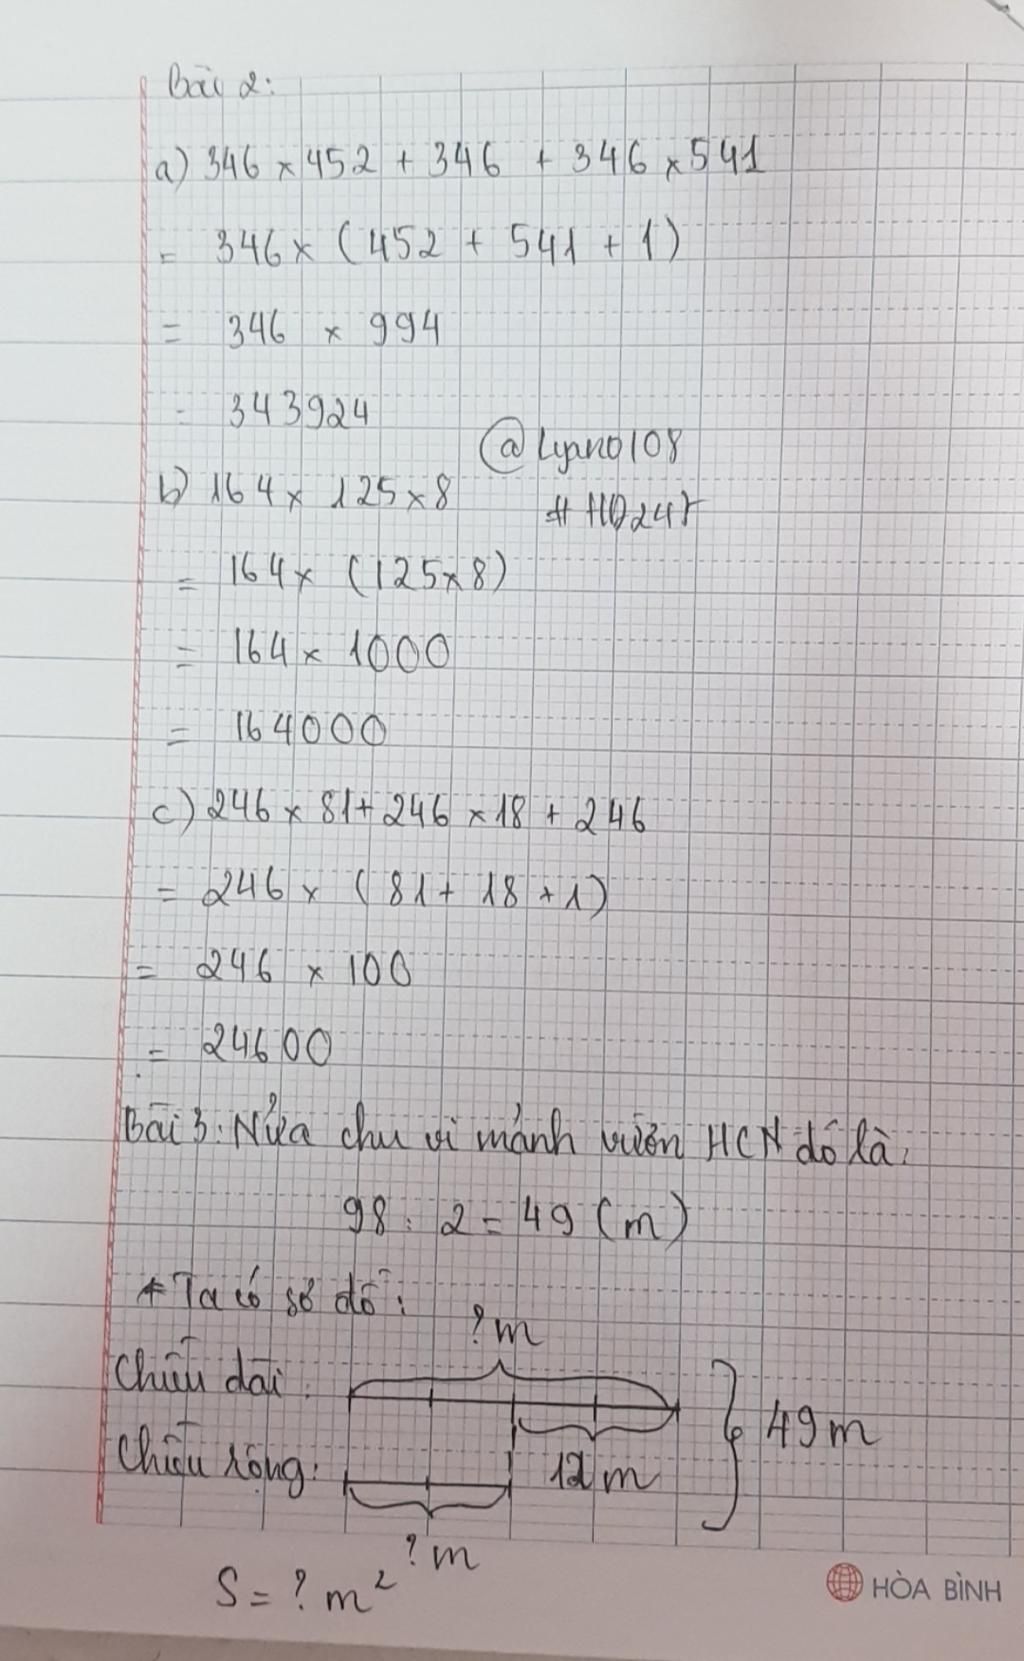 Bài 2:
a) 346 × 452 + 346 + 346 × 541
= 346 × (452 + 541 + 1)
= 346 × 994
= 343924
@Lyano108
b) 164 × 125 × 8
= 164 × (125 × 8)
= 164 × 1000
= 164000
c) 246 × 81 + 246 × 18 + 246
= 246 × (81 + 18 + 1)
= 246 × 100
= 24600
Bài 3: Nửa chu vi mảnh vườn HCN đó là:
98 : 2 = 49 (m)
* Ta có sơ đồ:
? m
Chiều dài:
49 m
Chiều rộng:
12 m
? m
S = ? m²
HÒA BÌNH